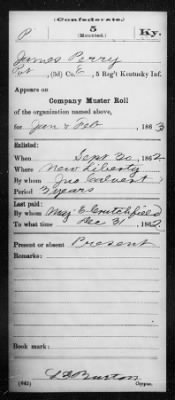 Confederate.
P 5 Ky.
(Mounted.)
James Perry
Pvt, (3d) Co. E, 5 Reg't Kentucky Inf.
Appears on
Company Muster Roll
of the organization named above,
for Jan & Feb, 1863
Enlisted:
When Sept 20, 1862
Where New Liberty
By whom Jno Calvert
Period 3 years
Last paid:
By whom Maj E Crutchfield
To what time Dec 31, 1862
Present or absent Present
Remarks:
Book mark:
Burton
(642) Copyist.